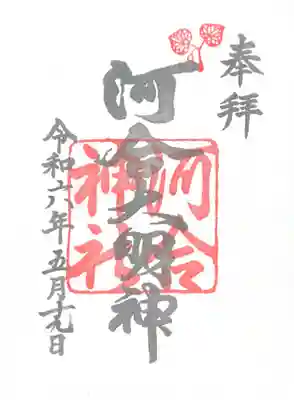 奉拝
河合大明神
河合
神社
令和六年 五月十九日